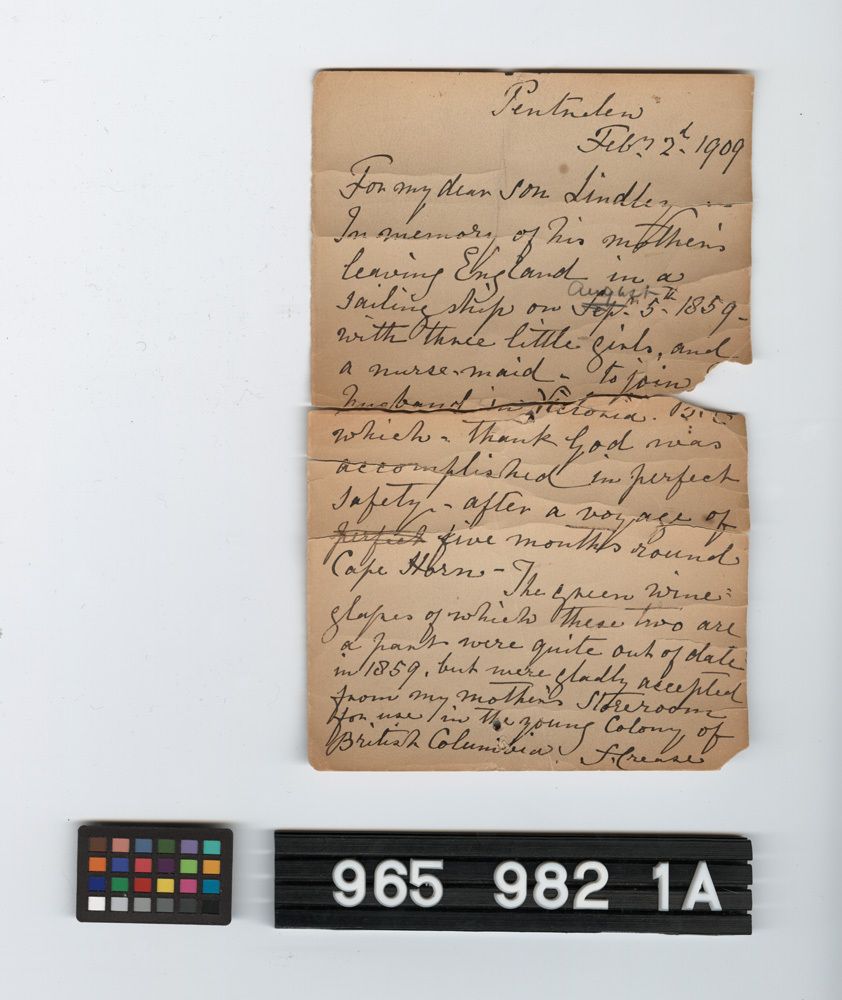 Pentrelew
Feby 2d. 1909
For my dear son Lindley
In memory of his mother's
leaving England in a
August
sailing ship on Sep. 5th 1859 -
with three little girls, and
a nurse-maid - to join
husband in Victoria. B.C
which - thank God was
accomplished in perfect
safety - after a voyage of
perfect five months round
Cape Horn - The green wine=
glasses of which these two are
a part were quite out of date
in 1859, but were gladly accepted
from my mother's storeroom
for use in the young Colony of
British Columbia. S. Crease
965 982 1A